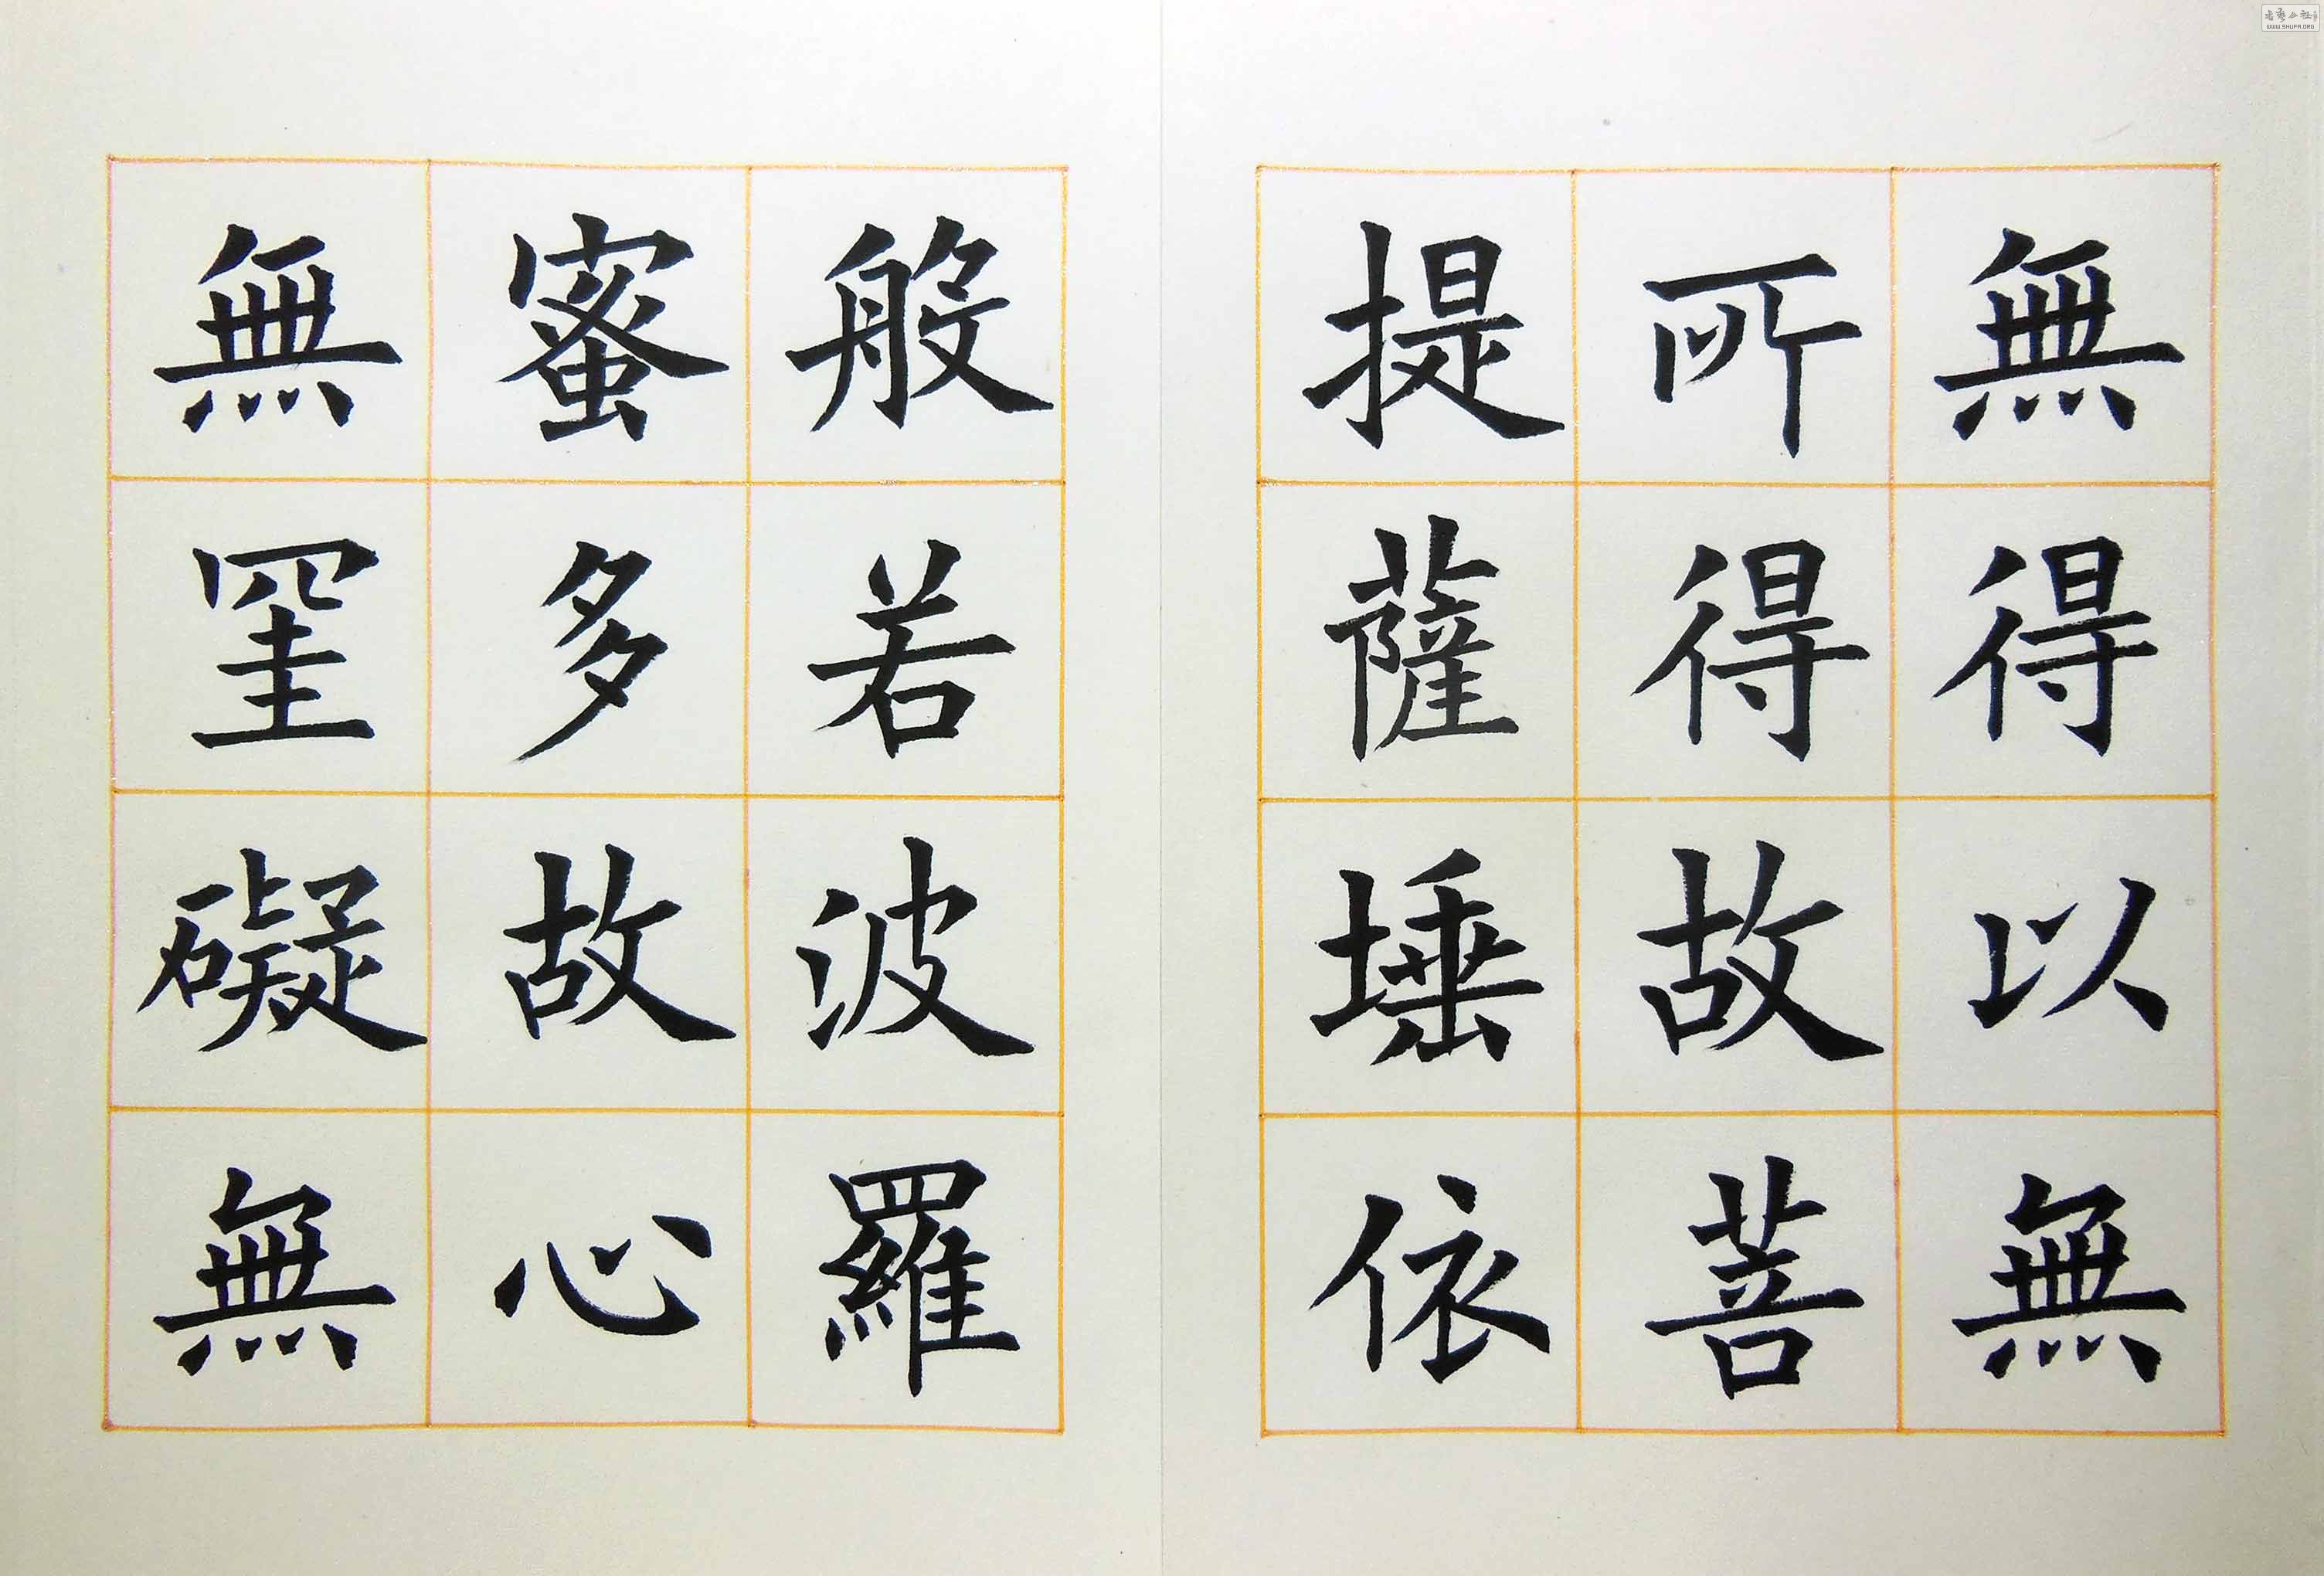 無得以無
所得故菩
提薩埵依
般若波羅
蜜多故心
無罣礙無
WWW.SHUFA.ORG